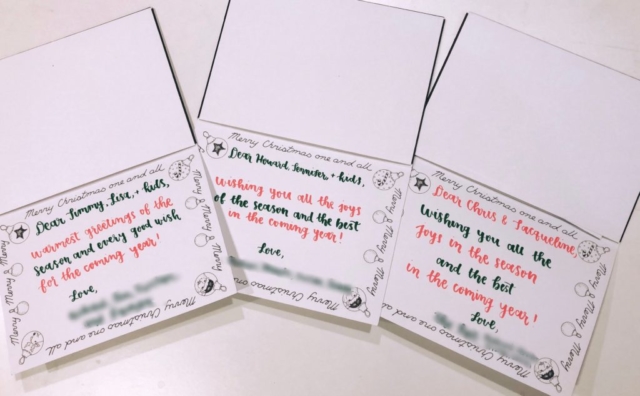 Merry Christmas one and all
Dear Jimmy, Lisa, + kids,
warmest greetings of the
season and every good wish
for the coming year!
Love,
Merry Christmas one and all
Merry & Merry
Merry Christmas one and all
Dear Howard, Jennifer, + kids,
Wishing you all the joys
of the season and the best
in the coming year!
Love,
Merry Christmas one and all
Merry & Merry
Merry Christmas one and all
Dear Chris & Jacqueline,
Wishing you all the
Joys in the season
and the best
in the coming year!
Love,
Merry Christmas one and all
Merry & Merry